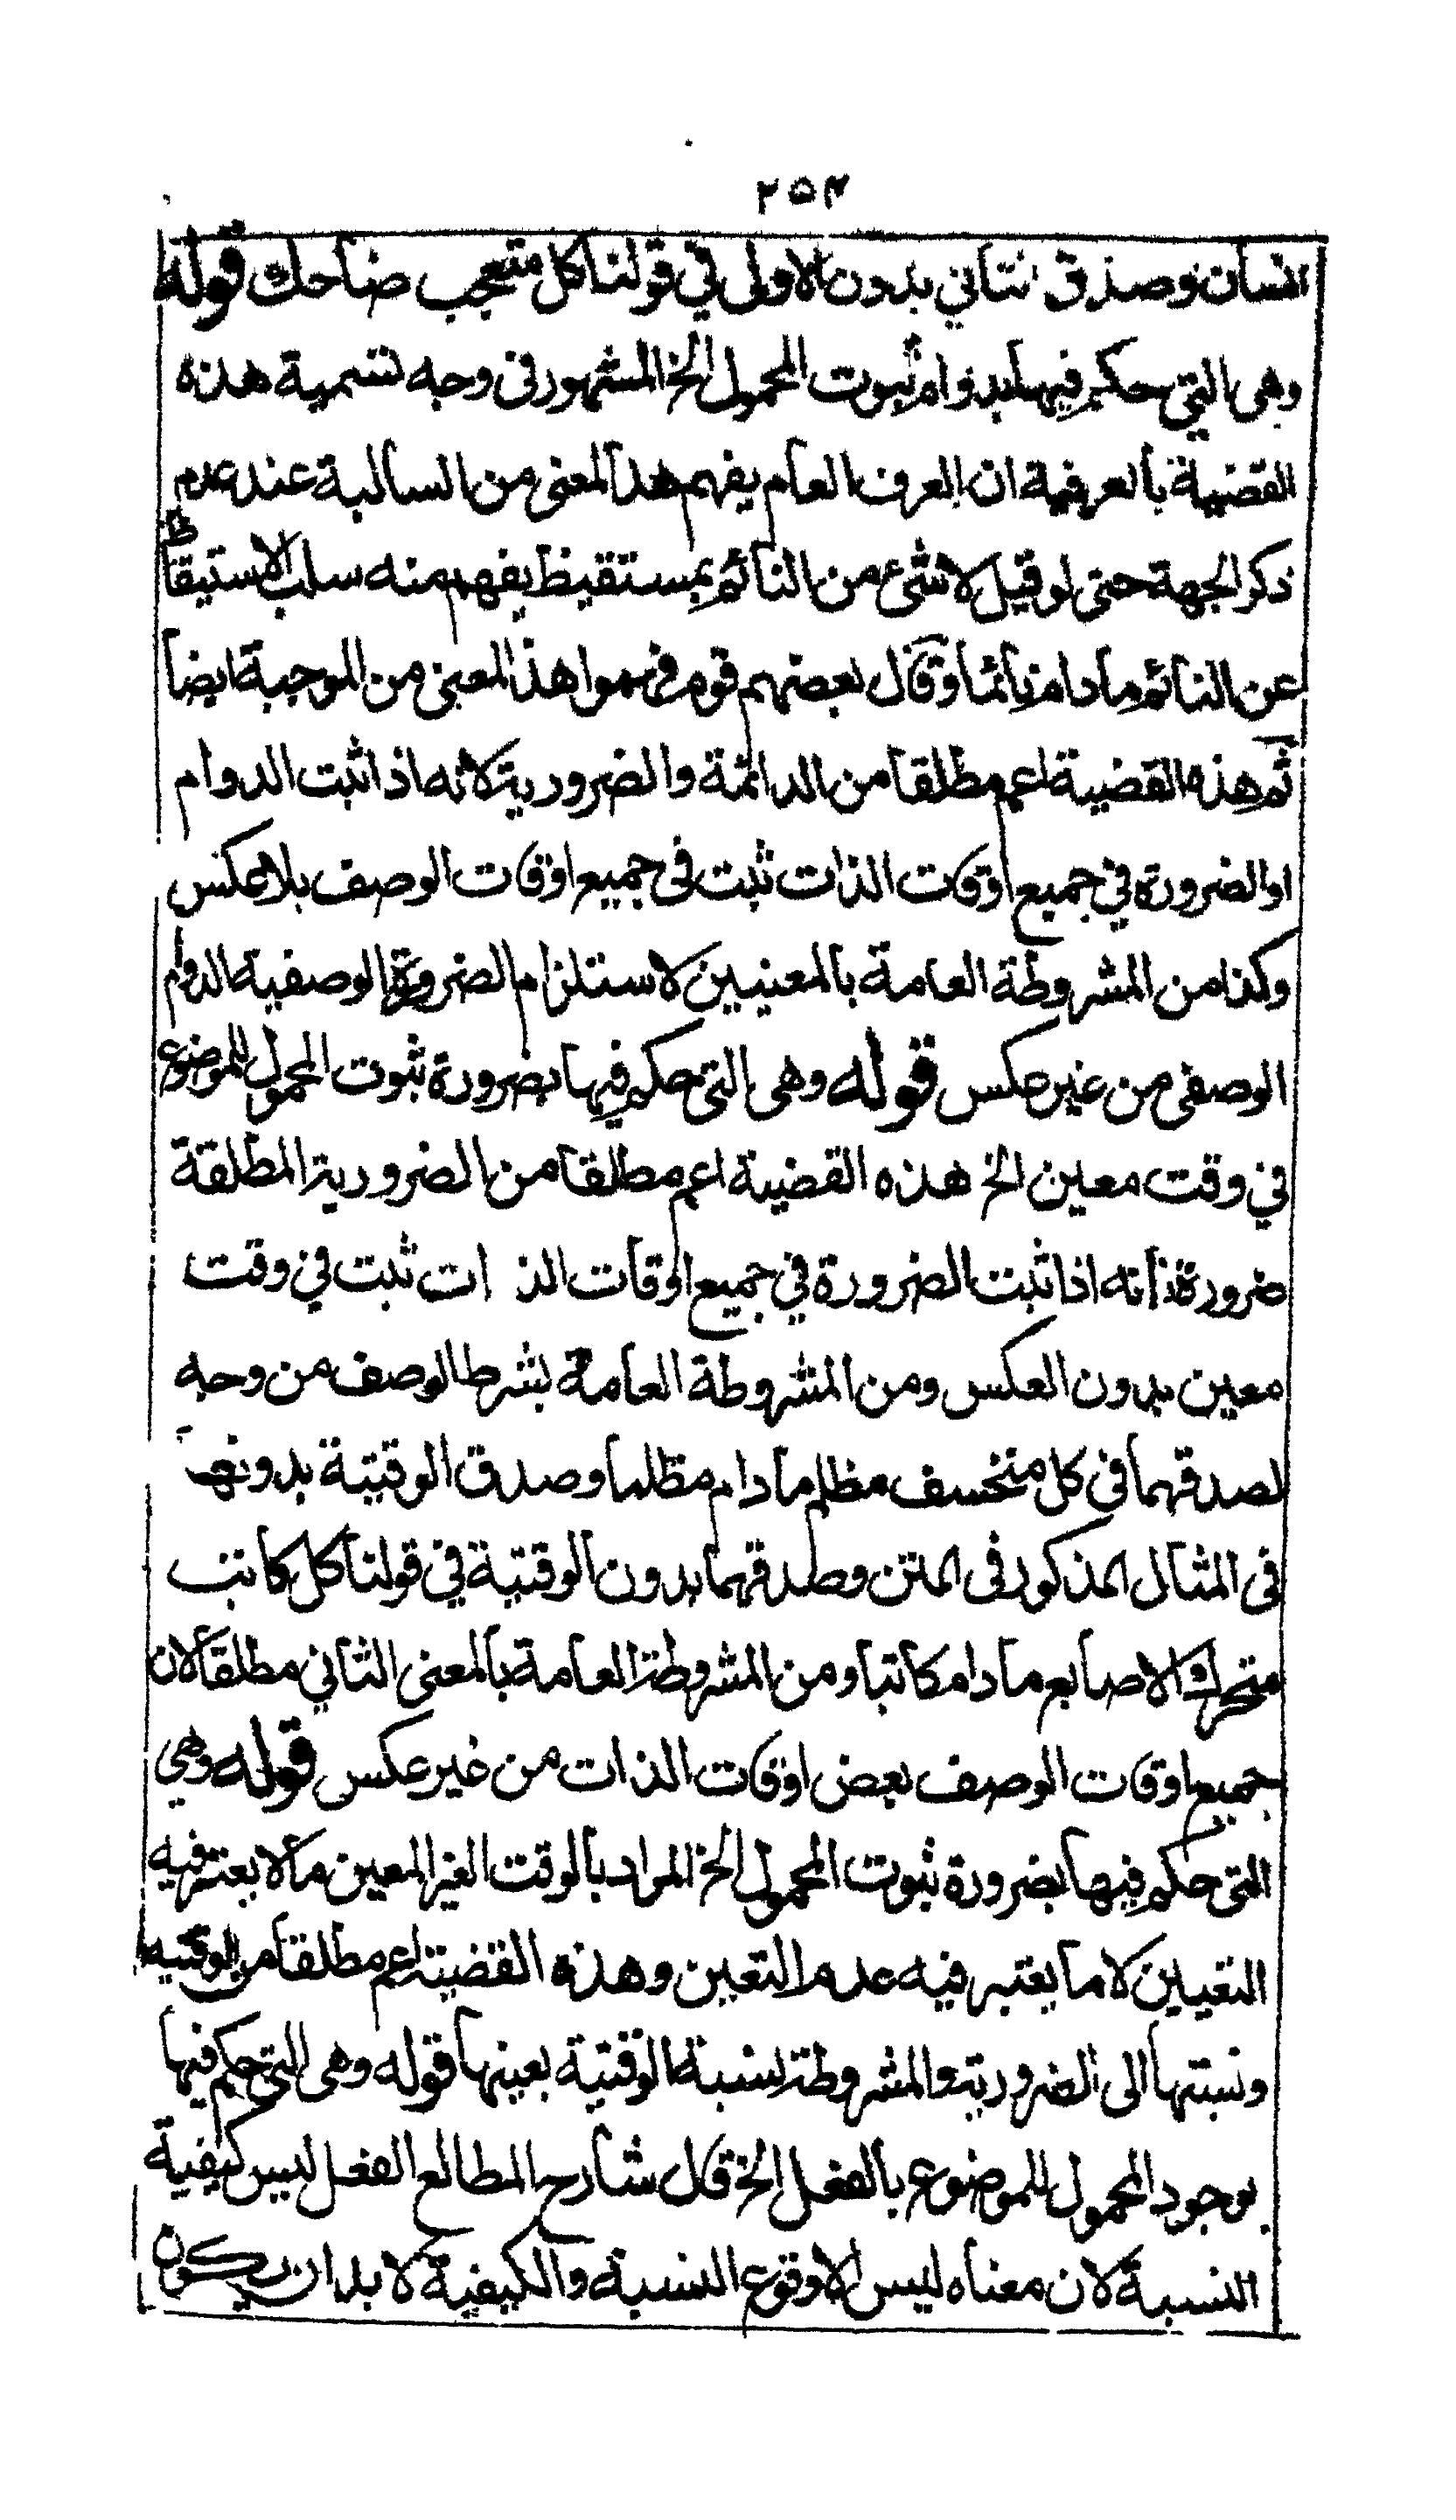 ٢٥٣
انسان وصدق الثاني بدون الاولى في قولنا كل متعجب ضاحك قوله
وهي التي حكم فيها بدوام ثبوت المحمول الخ المشهور في وجه تسمية هذه
القضية بالعرفية ان العرف العام يفهم هذا المعنى من السالبة عند عدم
ذكر الجهة حتى لو قيل لا شيء من النائم بمستقيظ يفهم منه سلب الاستيقاظ
عن النائم ما دام نائما وقال بعضهم قوم فهموا هذا المعنى من الموجبة ايضا
ثم هذه القضية اعم مطلقا من الدائمة والضرورية لانه اذا ثبت الدوام
او الضرورة في جميع اوقات الذات ثبت في جميع اوقات الوصف بلا عكس
وكذا من المشروطة العامة بالمعنيين لاستلزام الضرورة الوصفية الدوام
الوصفي من غير عكس قوله وهي التي حكم فيها بضرورة ثبوت المحمول للموضوع
في وقت معين الخ هذه القضية اعم مطلقا من الضرورية المطلقة
ضرورة انه اذا ثبت الضرورة في جميع اوقات الذات ثبت في وقت
معين بدون العكس ومن المشروطة العامة بشرط الوصف من وجه
لصدقهما في كل منخسف مظلم ما دام مظلما وصدق الوقتية بدونها
في المثال المذكور في المتن وصدقهما بدون الوقتية في قولنا كل كاتب
متحرك الاصابع ما دام كاتبا ومن المشروطة العامة بالمعنى الثاني مطلقا لان
جميع اوقات الوصف بعض اوقات الذات من غير عكس قوله وهي
التي حكم فيها بضرورة ثبوت المحمول الخ المراد بالوقت الغير المعين ما لا يعتبر فيه
التعيين لا ما يعتبر فيه عدم التعيين وهذه القضية اعم مطلقا من الوقتية
ونسبتها الى الضرورية والمشروطة لنسبة الوقتية بعينها قوله وهي التي حكم فيها
بوجود المحمول للموضوع بالفعل الخ قال شارح المطالع الفعل ليس كيفية
النسبة لان معناه ليس الا وقوع النسبة والكيفية لا بد ان يكون